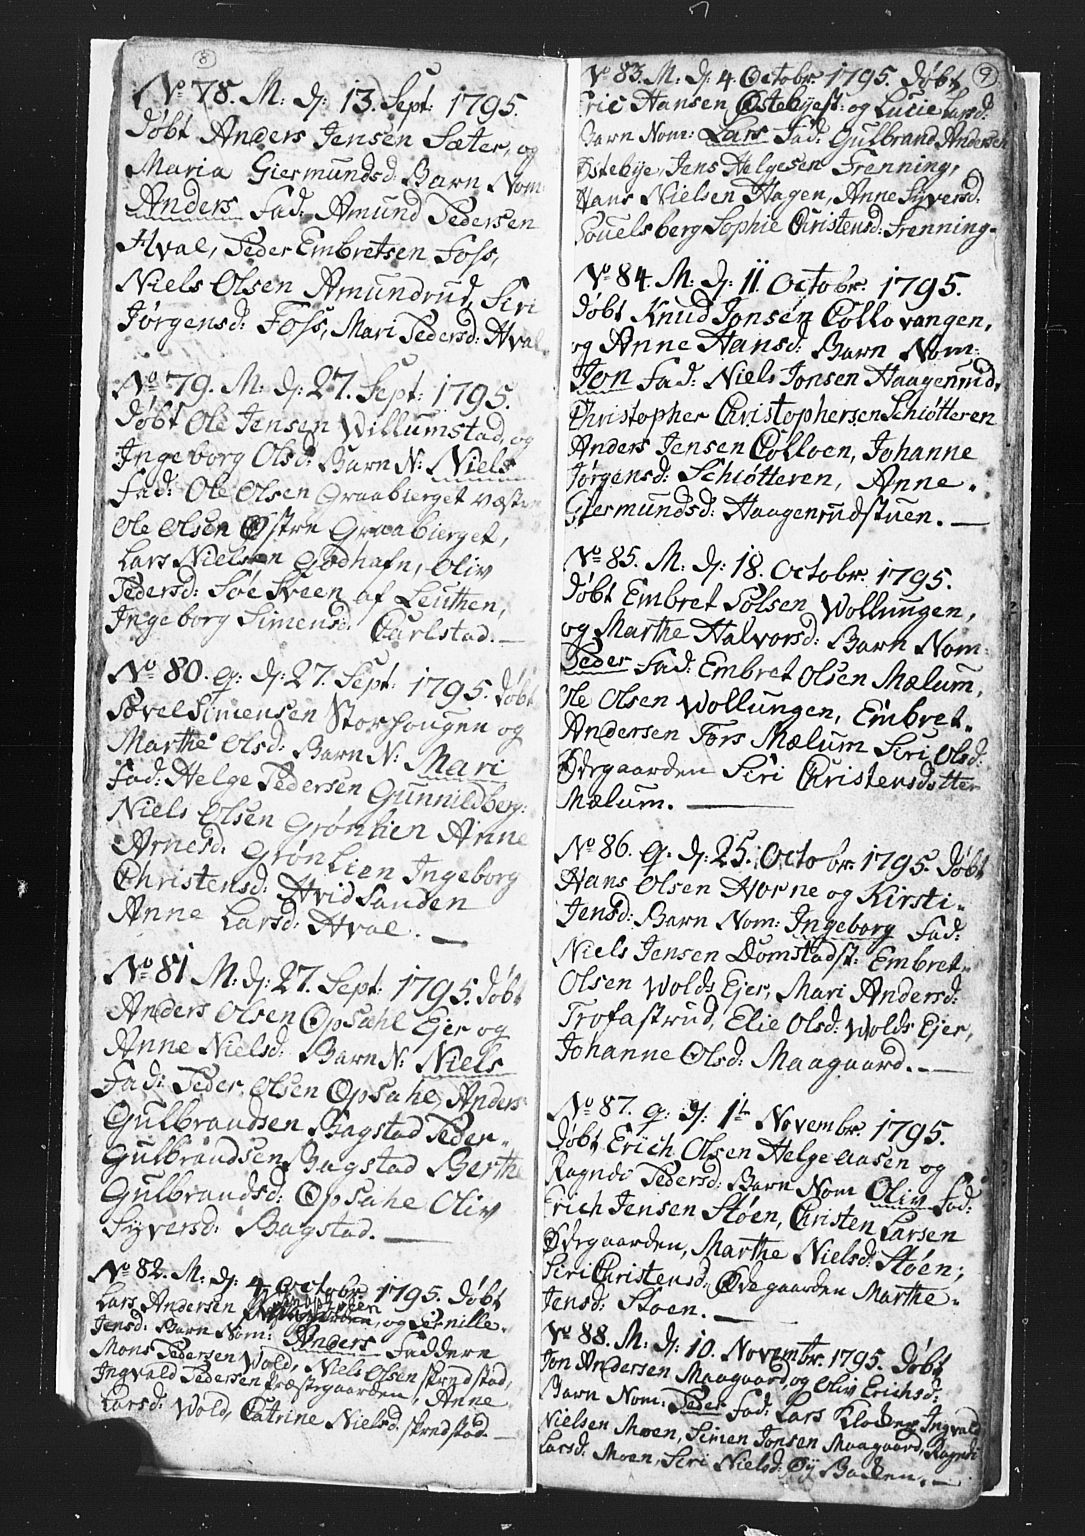 8
No 78. M: d: 13. Sept: 1795.
døbt Anders Jensen Sæter, og
Maria Giermundsd: Barn Nom:
Anders Fad: Amund Pedersen
Hval, Peder Embretsen Foss,
Niels Olsen Amundrud, Siri
Jørgensd: Foss, Mari Pedersd: Hval.
No 79. M: d: 27. Sept: 1795.
døbt Ole Jensen Willumstad, og
Ingeborg Olsd: Barn N: Niels
Fad: Ole Olsen Graabierget væstre
Ole Olsen Østre Graabierget,
Lars Nielsen Godhafn, Oliv
Pedersd: Søe Sveen af Leuthen,
Ingeborg Simensd: Carlstad.
No 80. q: d: 27. Sept: 1795. døbt
Povel Simensen Storhougen og
Marthe Olsd: Barn N: Mari
Fad: Helge Pedersen Gunnildberg:
Niels Olsen Grønlien Anne
Arnesd: Grønlien Ingeborg
Christensd: Hvidsanden
Anne Larsd: Hval.
No 81 M: d: 27. Sept: 1795. døbt
Anders Olsen Opsahl Ejer og
Anne Nielsd: Barn N: Niels
Fad: Peder Olsen Opsahl, Anders
Gulbrandsen Bagstad Peder
Gulbrandsen Bagstad Berthe
Gulbrandsd: Opsahl Oliv
Syversd: Bagstad.
No 82. M: d: 4 Octobr: 1795. Døbt
Lars Andersen og Pernille
Jensd: Barn Nom: Anders Faddere
Mons Pedersen Wold, Niels Olsen
Ingvald Pedersen Præstegaarden, Anne
Larsd: Wold, Catrine Nielsd:
9
No 83. M: d: 4 Octobr 1795. Døbt
Eric Hansen Østebyest: og Lucie Larsd:
Barn Nom: Lars Fad: Gulbrand Andersen
Østebye, Jens Helgesen Frenning,
Hans Nielsen Hagen, Anne Syversd:
Pouelsberg Sophie Christensd: Frenning.
No 84. M: d: 11. Octobr: 1795.
døbt Knud Jonsen Collovangen,
og Anne Hansd: Barn Nom:
Jon Fad: Niels Jonsen Haagenrud,
Christopher Christophersen Schiøtteren
Anders Jensen Colloen, Johanne
Jørgensd: Schiøtteren, Anne
Giermundsd: Haagenrudstuen.
No 85. M: d: 18. Octobr: 1795.
døbt Embret Polsen Wollungen,
og Marthe Halvorsd: Barn Nom:
Peder Fad: Embret Olsen Mælum,
Ole Olsen Wollungen, Embret
Andersen Fors Mælum Siri Olsd:
Ødegaarden Siri Christensdotter
Mælum.
No 86. q. d: 25. Octobr: 1795. Døbt
Hans Olsen Horne og Kirsti
Jensd: Barn Nom: Ingeborg Fad:
Niels Jensen Domstadst: Embret
Olsen Wolds Ejer, Mari Andersd:
Trofastrud, Elie Olsd: Wolds Ejer,
Johanne Olsd: Maagaard.
No 87. q: d: 1te Novembr: 1795.
Døbt Erich Olsen Helgeaasen og
Ragndi Pedersd: Barn Nom Oliv Fad:
Erich Jensen Støen, Christen Larsen
Ødegaarden, Marthe Nielsd: Støen;
Siri Christensd: Ødegaarden Marthe
Jensd: Støen.
No 88. M: d: 10. Novembr: 1795. Døbt
Jon Andersen Maagaard, og Oliv Erichsd:
Barn Nom: Peder Fad: Lars Klocker, Ingvald
Nielsen Moen, Simen Jonsen Maagaard, Ragndi
Larsd: Moen, Siri Nielsd: Øy Backen.